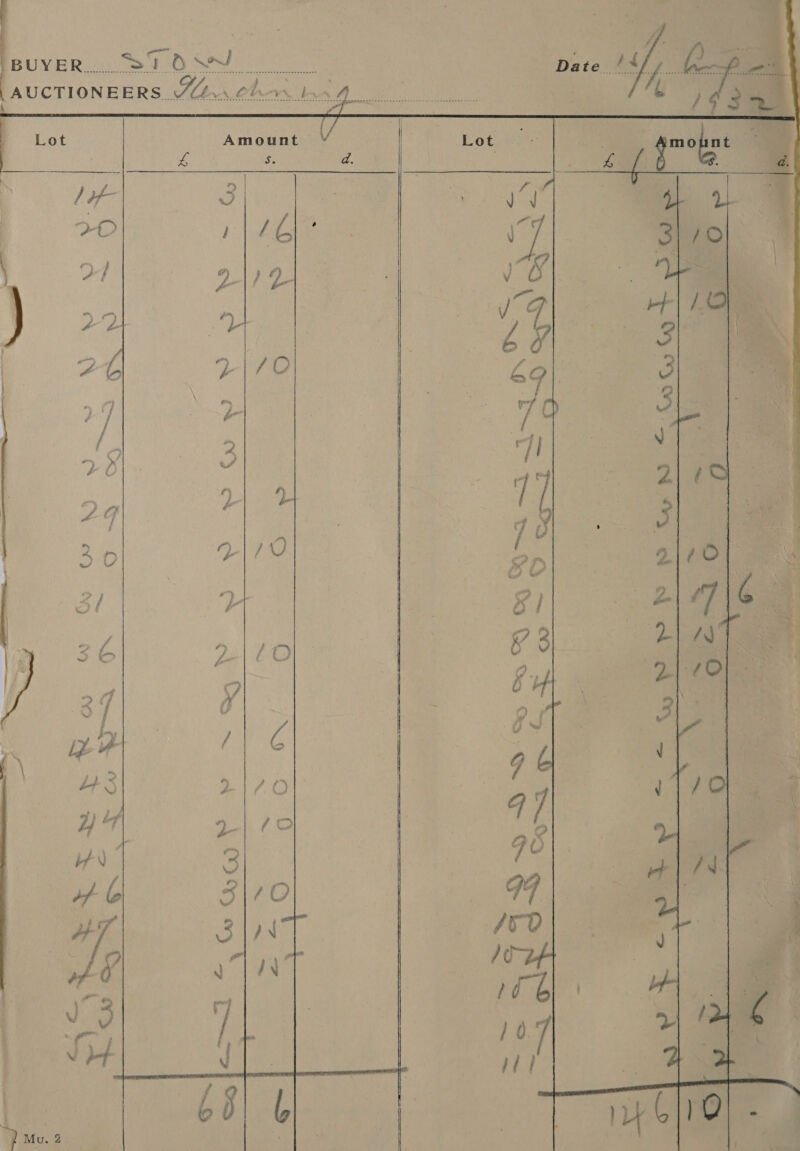 BUYER STOW
AUCTIONEERS
Date 1932
Lot Amount
£ s. d.
14 3
20 1 16
21 2 12
22 2
26 2 10
27 2
28 3
29 2 2
30 2 10
31 2
36 2 10
37 8
42 1 6
43 2 10
44 2 10
45 3
46 3 10
47 3 15
48 5 15
53 7
54 5
68 6
Mu. 2
Lot Amount
£ s. d.
55 2 2
57 3 10
58 2
59 4 10
68 3
69 3
70 3
71 5
77 2 10
78 3
80 2 10
81 2 7 6
83 2 15
84 2 10
85 3
96 5
97 5 10
98 2
99 4 15
100 2
104 5
106 4
107 2 12 6
111 2 2
146 10 -